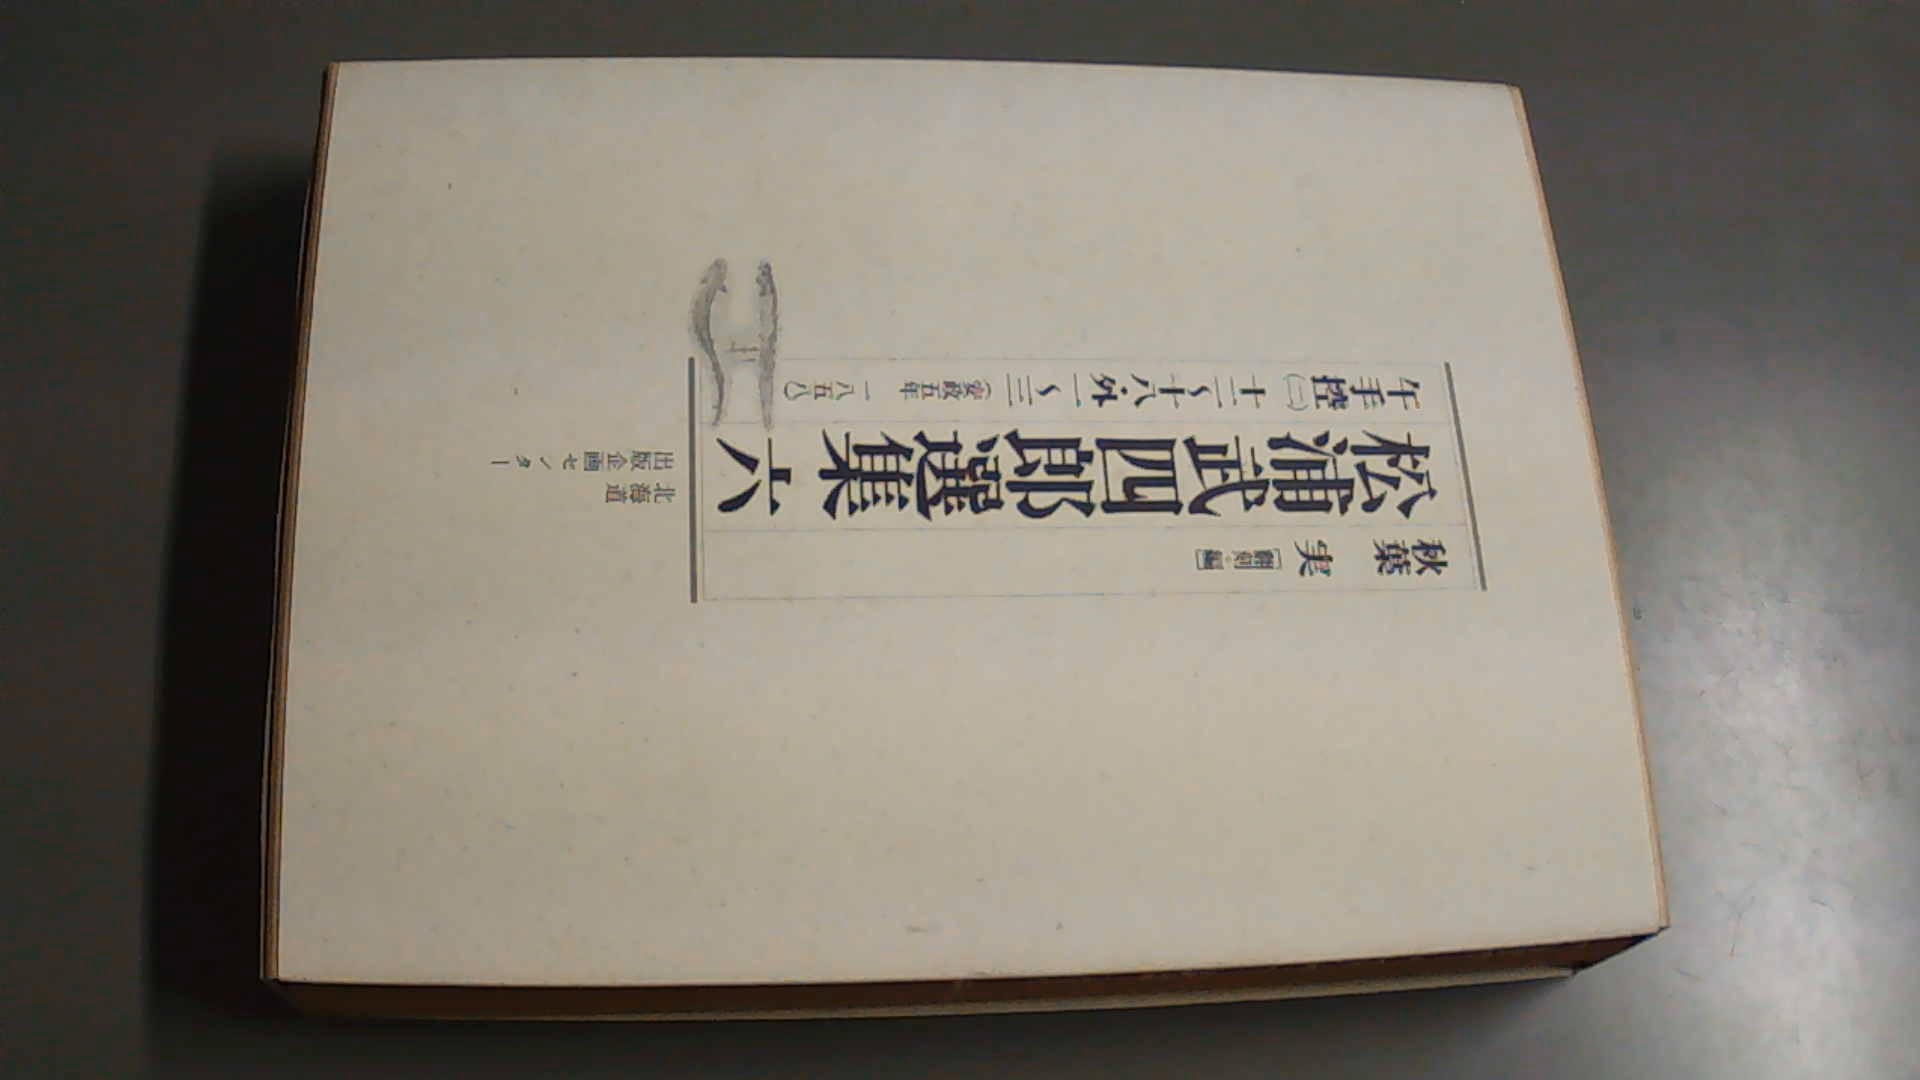 秋葉 実 [翻刻・編]
松浦武四郎選集 六
午手控(二) 十二〜十八・外一〜三 (安政五年 一八五八)
北海道
出版企画センター